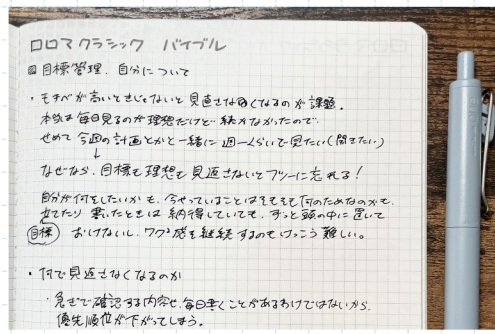 ロロマクラシック バイブル
目標管理、自分について
・モチベが高いときじゃないと見直さなくなるのが課題。
本当は毎日見るのが理想だけど続かなかったので、
せめて今週の計画とかと一緒に週一くらいで見たい(開きたい)
↓
なぜなら、目標も理想も見返さないとフツーに忘れる!
自分が何をしたいかも、今やっていることはそもそも何のためなのかも、
立てたり書いたときは納得していても、ずっと頭の中に置いて
目標 おけないし、ワクワク感を継続するのもけっこう難しい。
・何で見返さなくなるのか
・急ぎで確認する内容や、毎日書くことがあるわけではないから、
優先順位が下がってしまう。